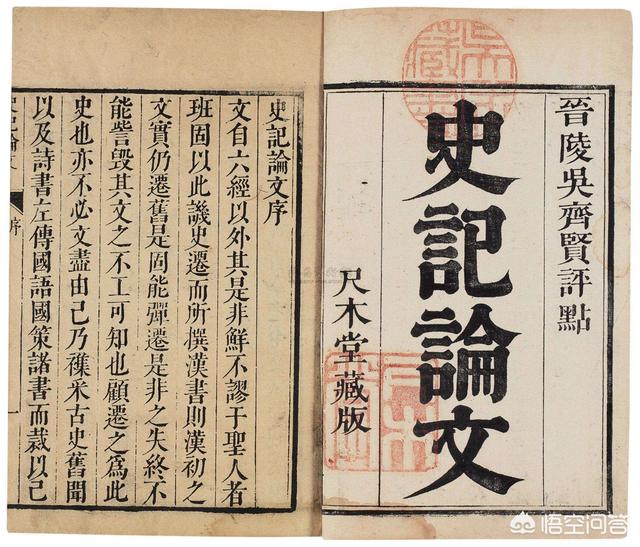 晉陵吳齊賢評點
史記論文
尺木堂藏版
史記論文序
文自六經以外其是非鮮不謬于聖人者
班固以此譏史遷而所撰漢書則漢初之
文實仍遷舊是固能彈遷是非之失終不
能訾毀其文之不工可知也顧遷之為此
史也亦不必文盡由己乃襍采古史舊聞
以及詩書左傳國語國策諸書而裁以己
序
悟空问答